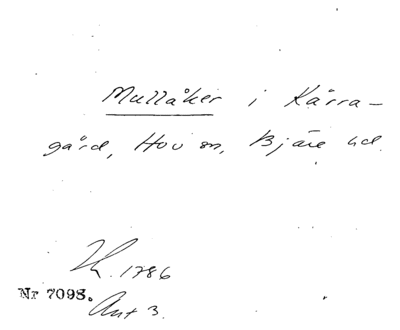 Mullåker i Kärra-
gård, Hov sn, Bjäre hd.
Lk. 1786
Nr 7098.
Akt 3.